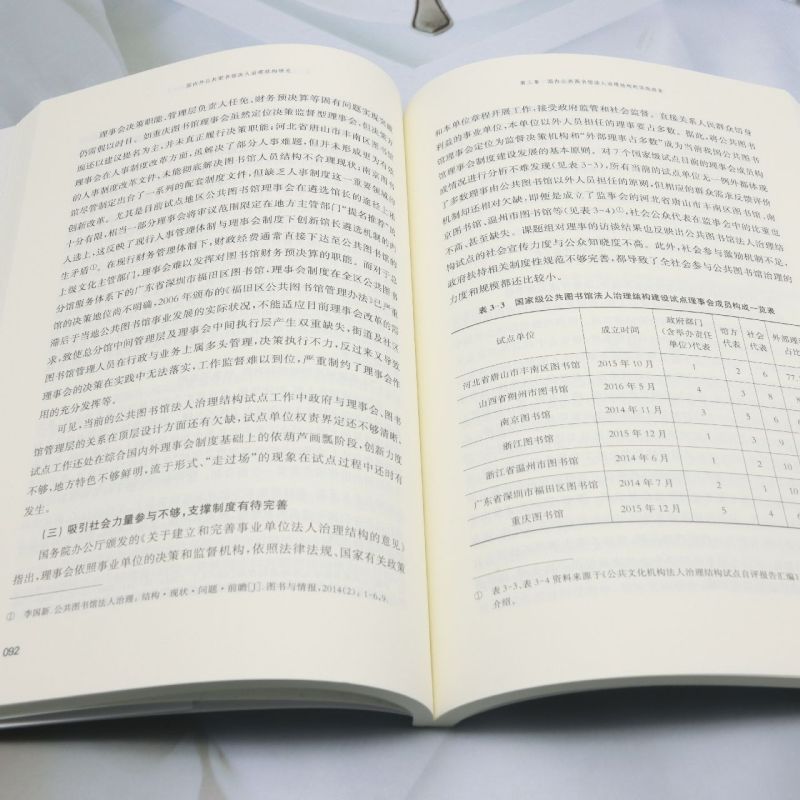 国内外公共图书馆法人治理结构研究
理事会决策职能,管理层负责人任免、财务预决算等固有问题实现突破
仍需假以时日。如重庆图书馆理事会虽然定位决策监督型理事会,但决策方
现还以建议提名为主,并未真正履行决策职能;河北省唐山市丰南区图书馆
理事会在人事制度改革方面,虽解决了部分人事难题,但并未形成更为有效
的人事制度改革文件,未能彻底解决图书馆人员结构不合理现状;南京图书
馆尽管制定出台了一系列的配套制度文件,但缺乏人事制度这一重要领域的
创新改革。尤其是目前试点地区公共图书馆理事会在遴选馆长的途径上还
十分有限,相当一部分理事会将审议范围限定在地方主管部门“提名推荐”的
人选上,这反映了现行人事管理体制与理事会制度下创新馆长遴选机制的内
生矛盾①。在现行财务管理体制下,财政经费通常直接下达至公共图书馆的
上级文化主管部门,理事会难以发挥对图书馆财务预决算的职能。而对于总
分馆服务体系下的广东省深圳市福田区图书馆,理事会制度在全区公共图书馆
的决策地位尚不明确,2006 年颁布的《福田区公共图书馆管理办法》已严重
滞后于当地公共图书馆事业发展的实际状况,不能适应目前理事会改革的需
求,致使总分馆中间管理层及理事会中间执行层产生双重缺失,街道及社区
图书馆管理人员在行政与业务上属多头管理,决策执行不力,反过来又导致
理事会的决策在实践中无法落实,工作监督难以到位,严重制约了理事会作
用的充分发挥等。
可见,当前的公共图书馆法人治理结构试点工作中政府与理事会、图书
馆管理层的关系在顶层设计方面还有欠缺,试点单位权责界定还不够清晰,
试点工作还处在综合国内外理事会制度基础上的依葫芦画瓢阶段,创新力度
不够,地方特色不够鲜明,流于形式、“走过场”的现象在试点过程中还时有
发生。
(三) 吸引社会力量参与不够,支撑制度有待完善
国务院办公厅颁发的《关于建立和完善事业单位法人治理结构的意见》
指出,理事会依照事业单位的决策和监督机构,依照法律法规、国家有关政策
① 李国新.公共图书馆法人治理:结构·现状·问题·前瞻[J].图书与情报,2014(2):1-6,9.
092
第三章 国内公共图书馆法人治理结构的实践探索
和本单位章程开展工作,接受政府监管和社会监督。直接关系人民群众切身
利益的事业单位,本单位以外人员担任的理事要占多数。据此,将公共图书
馆理事会定位为监督决策机构和“外部理事占多数”成为当前我国公共图书
馆理事会制度建设发展的基本原则。对 7 个国家级试点目前的理事会成员构
成情况进行分析不难发现(见表 3-3),所有当前的试点单位无一例外都体现
了多数理事由公共图书馆以外人员担任的原则,但相应的群众需求反馈评价
机制却还相对欠缺,即便是成立了监事会的河北省唐山市丰南区图书馆、南
京图书馆、温州市图书馆等(见表 3-4)①,社会公众代表在监事会中的比重也
不高、甚至缺失。课题组对理事的访谈结果也反映出公共图书馆法人治理结
构试点的社会宣传力度与公众知晓度不高。此外,社会参与激励机制不足,
政府扶持相关制度性规范不够完善,都导致了全社会参与公共图书馆治理的
力度和规模都还比较小。
表 3-3 国家级公共图书馆法人治理结构建设试点理事会成员构成一览表
试点单位 成立时间 政府部门(含举办责任单位)代表 馆方代表 社会代表 外部理
河北省唐山市丰南区图书馆 2015 年 10 月 1 2 6 77.
山西省朔州市图书馆 2016 年 5 月 4 3 8
南京图书馆 2014 年 11 月 3 5 6
浙江图书馆 2015 年 12 月 1 3 9
浙江省温州市图书馆 2014 年 6 月 1 2 10
广东省深圳市福田区图书馆 2014 年 7 月 2 1 10
重庆图书馆 2015 年 12 月 5 4 6
① 表 3-3、表 3-4 资料来源于《公共文化机构法人治理结构试点自评报告汇编》
介绍。